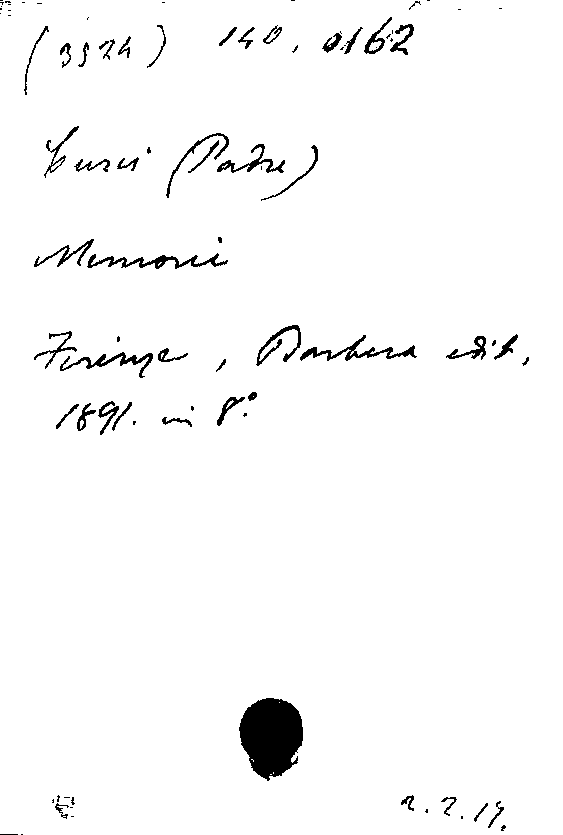 (3524) 140.0162
Curci (Padre)
Memorie
Firenze, Barbera edit,
1891. in 8°
2.2.19.